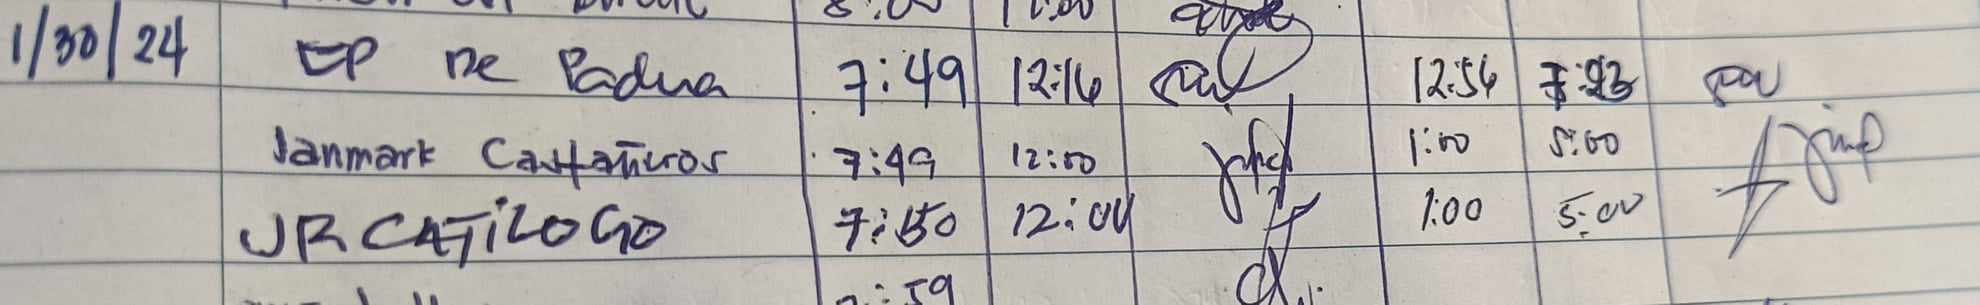 8:00 12:00
1/30/24 EP De Padua 7:49 12:16 12:54
Janmark Castañeros 7:49 12:00 1:00 5:00
JR CATILOGO 7:50 12:04 1:00 5:00
:59